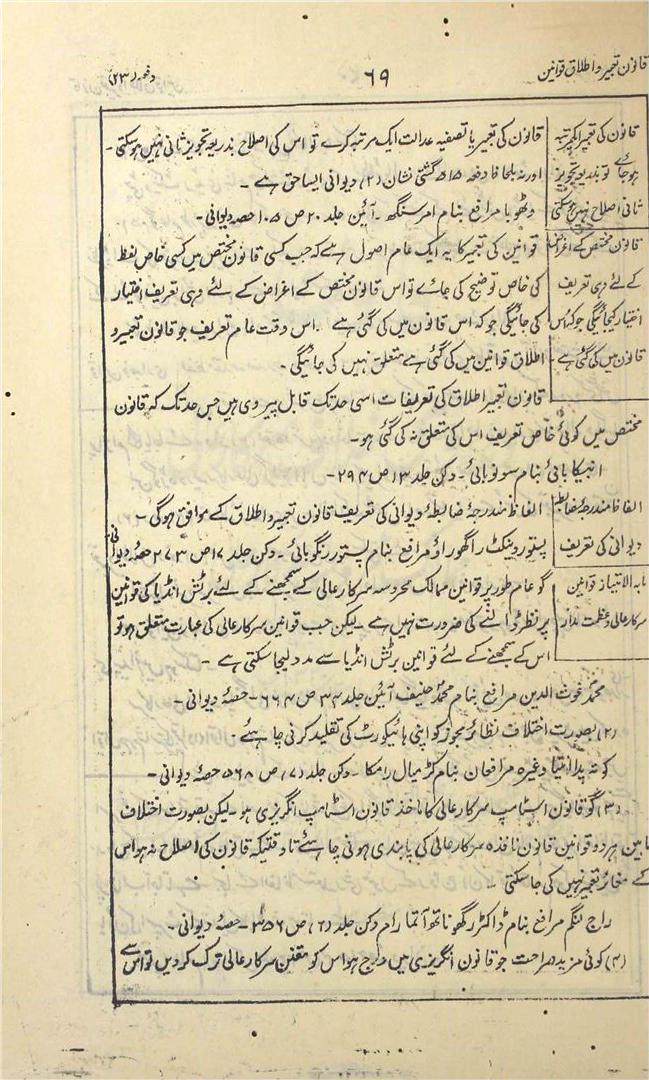 قانون تعبیر و اطلاق قوانین
۶۹
دفعہ (۲۳)
قانون کی تعبیر اگر ایک مرتبہ
ہو جائے تو بذریعہ تجویز
ثانی اصلاح نہیں ہو سکتی
قانون کی تعبیر یا تصفیہ عدالت ایک مرتبہ کرے تو اس کی اصلاح بذریعہ تجویز ثانی نہیں ہو سکتی ۔
اور نہ بلحاظ دفعہ ۵۱۵ گشتی نشان (۲) دیوانی ایسا حق ہے ۔
وٹھوبا مرافع بنام امر سنگھ ۔ آئین جلد ۲۰ ص ۱۰۵ حصہ دیوانی ۔
قانون مختص کے اغراض
کے لئے وہی تعریف
اختیار کیجائیگی جو کہ اس
قانون میں کی گئی ہے
قوانین کی تعبیر کا یہ ایک عام اصول ہے کہ جب کسی قانون مختص میں کسی خاص لفظ
کی خاص توضیح کی جائے تو اس قانون مختص کے اغراض کے لئے وہی تعریف اختیار
کی جائیگی جو کہ اس قانون میں کی گئی ہے ۔ اس وقت عام تعریف جو قانون تعبیر و
اطلاق قوانین میں کی گئی ہے متعلق نہیں کی جائیگی ۔
قانون تعبیر اطلاق کی تعریفات اسی حد تک قابل پیروی ہیں جس حد تک کہ قانون
مختص میں کوئی خاص تعریف اس کی متعلق نہ کی گئی ہو ۔
انبیکا بائی بنام سونو بائی ۔ دکن جلد ۱۳ ص ۲۹۴ ۔
الفاظ مندرجۂ ضابطہ
دیوانی کی تعریف
الفاظ مندرجۂ ضابطۂ دیوانی کی تعریف قانون تعبیر و اطلاق کے موافق ہوگی ۔
پستور وینکٹ راگھوراؤ مرافع بنام پستور رنگوبائی ۔ دکن جلد ۱۷ ص ۲۷۳ حصۂ دیوانی
مابہ الامتیاز قوانین
سرکار عالی و عظمت مدار
گو عام طور پر قوانین ممالک محروسہ سرکار عالی کے سمجھنے کے لئے برٹش انڈیا کی قوانین
پر نظر ڈالنے کی ضرورت نہیں ہے ۔ لیکن جب قوانین سرکار عالی کی عبارت متعلق ہو تو
اس کے سمجھنے کے لئے قوانین برٹش انڈیا سے مدد لیجا سکتی ہے ۔
محمد غوث الدین مرافع بنام محمد حنیف آئین جلد ۳۴ ص ۶۶۴ ۔ حصۂ دیوانی ۔
(۲) بصورت اختلاف نظائر مجوز کو اپنی ہائیکورٹ کی تقلید کرنی چاہیئے ۔
کوتہ پدا انتیا وغیرہ مرافعان بنام کڑمیال رامکا ۔ دکن جلد (۷) ص ۵۶۸ حصۂ دیوانی ۔
(۳) گو قانون اسٹامپ سرکار عالی کا ماخذ قانون اسٹامپ انگریزی ہو ۔ لیکن بصورت اختلاف
مابین ہر دو قوانین قانون نافذہ سرکار عالی کی پابندی ہونی چاہیئے تا وقتیکہ قانون کی اصلاح نہ ہو اس
کے مغائر تعبیر نہیں کی جا سکتی ۔
راج لنگم مرافع بنام ڈاکٹر رگھوناتھ آتما رام دکن جلد (۶) ص ۳۵۶ ۔ حصۂ دیوانی ۔
(۴) کوئی مزید صراحت جو قانون انگریزی میں درج ہو اس کو مقنن سرکار عالی ترک کر دیں تو اس سے